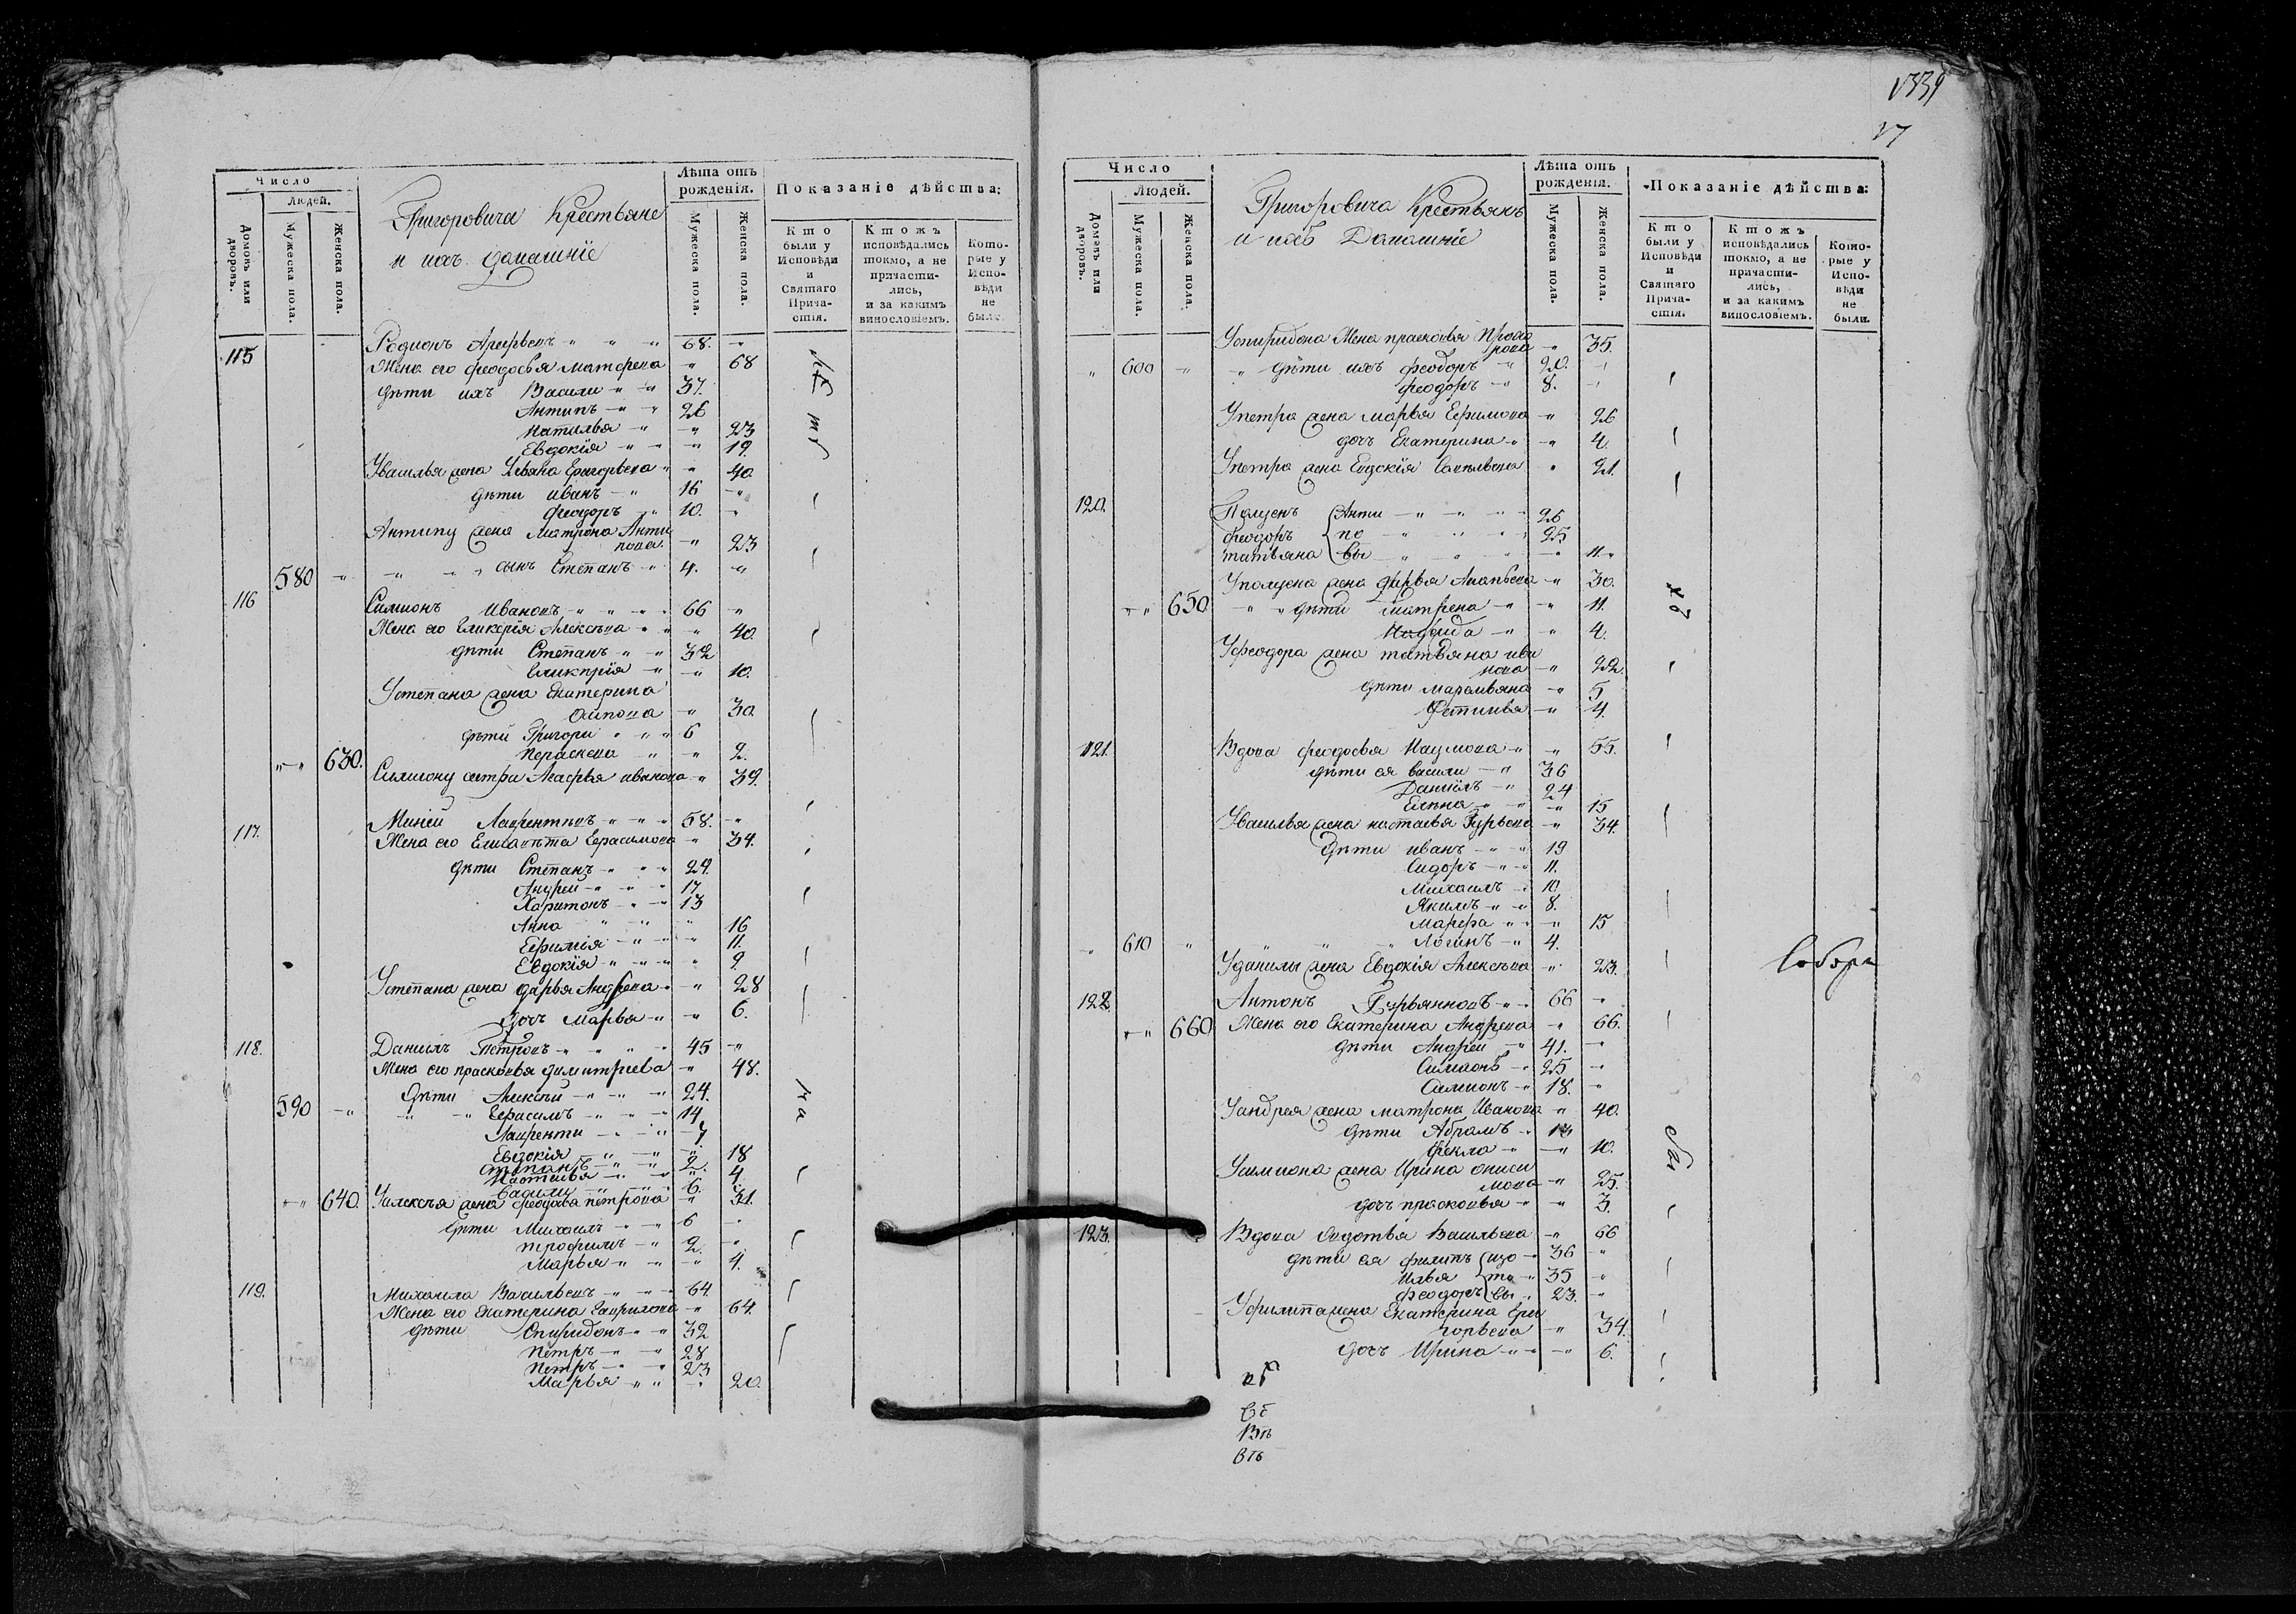 1339
17
Число
Людей.
Домовъ или дворовъ.
Мужеска пола.
Женска пола.
Григоровича Крестьяне
и ихъ домашніе
Лѣта отъ рожденія.
Мужеска пола.
Женска пола.
Показаніе дѣйства:
Кто были у Исповѣди и Святаго Причастія.
Ктожъ исповѣдались токмо, а не причастились, и за какимъ винословіемъ.
Которые у Исповѣди не были.
115 Родионъ 68.
Жена его феодосья 68
дѣти ихъ Васили 37.
Антипъ 26
Наталья 23
Евдокія 19.
Увасилья жена Ульяна Григорьева 40.
дѣти иванъ 16
феодоръ 10.
Антипу жена Матрона Анти
пова. 23
580 сынъ Степанъ 4.
116 Симионъ Ивановъ 66
Жена его Гликерія Алексѣва 40.
дѣти Степанъ 32
Гликирія 10.
Устепана жена Екатерина
30.
дѣти Григори 6
630. Параскева 2.
Симиону сестра Агафья иванова 39.
117. Миней Лаврентьевъ 58.
Жена его Елисавета Герасимова 34.
дѣти Степанъ 24.
Андрей 17
Харитонъ 13
Анна 16
Ефимія 11.
Евдокія 9.
Устепана жена дарья Андрева 28
дочь Марья 6.
118. Данилъ Петровъ 45
Жена его прасковья димитриева 48.
дѣти Алексѣй 24.
590 Герасимъ 14
Лаврентии 7
Евдокія 18
степанъ 2.
Настасья 4
васили 6.
640. Уалексѣя жена петрова 31.
дѣти Михаилъ 6
трофимъ 2.
Марья 4.
119. Михаила Васильевъ 64
Жена его Екатерина Гаврилова 64.
дѣти Спиридонъ 32
Петръ 28
Петръ 23
Марья 20.
Число
Людей.
Домовъ или дворовъ.
Мужеска пола.
Женска пола.
Григоровича Крестьянъ
и ихъ Домашніе
Лѣта отъ рожденія.
Мужеска пола.
Женска пола.
Показаніе дѣйства:
Кто были у Исповѣди и Святаго Причастія.
Ктожъ исповѣдались токмо, а не причастились, и за какимъ винословіемъ.
Которые у Исповѣди не были.
Успиридона Жена прасковья 35.
600 дѣти ихъ феодоръ 20.
феодоръ 8.
Упетра жена марья Ефимова 26
дочь Екатерина 4.
Упетра жена Евдокія 21.
120. Анти 26
феодоръ по 25
татьяна вы 11
жена дарья 30.
650 дѣти Матрена 11.
4.
Уфеодора жена татьяна ива
нова 22
дѣти 5
4.
121. Вдова феодосья Наумова 55.
дѣти ея васили 36
Данилъ 24
Елѣна 15
Увасилья жена настасья Гурьева 34.
дѣти иванъ 19
Сидоръ 11.
Михаилъ 10.
Якимъ 8.
Марфа 15
610 Логинъ 4.
Уданилы жена Евдокія Алексѣва 23.
122. Антонъ 66
660 Жена его Екатерина Андрева 66.
дѣти Андреи 41.
Симионъ 25
Симионъ 18.
Уандрея жена матрона Иванова 40.
дѣти Абрамъ 13
фекла 10.
Усимиона жена Ирина ониси
мова 25.
дочь прасковья 3.
123. Вдова Васильева 66
дѣти ея филипъ изо 36
Илья то 35
феодоръ вы 23.
Уфилипа жена Екатерина Гри
горьева 34.
дочь Ирина 6.